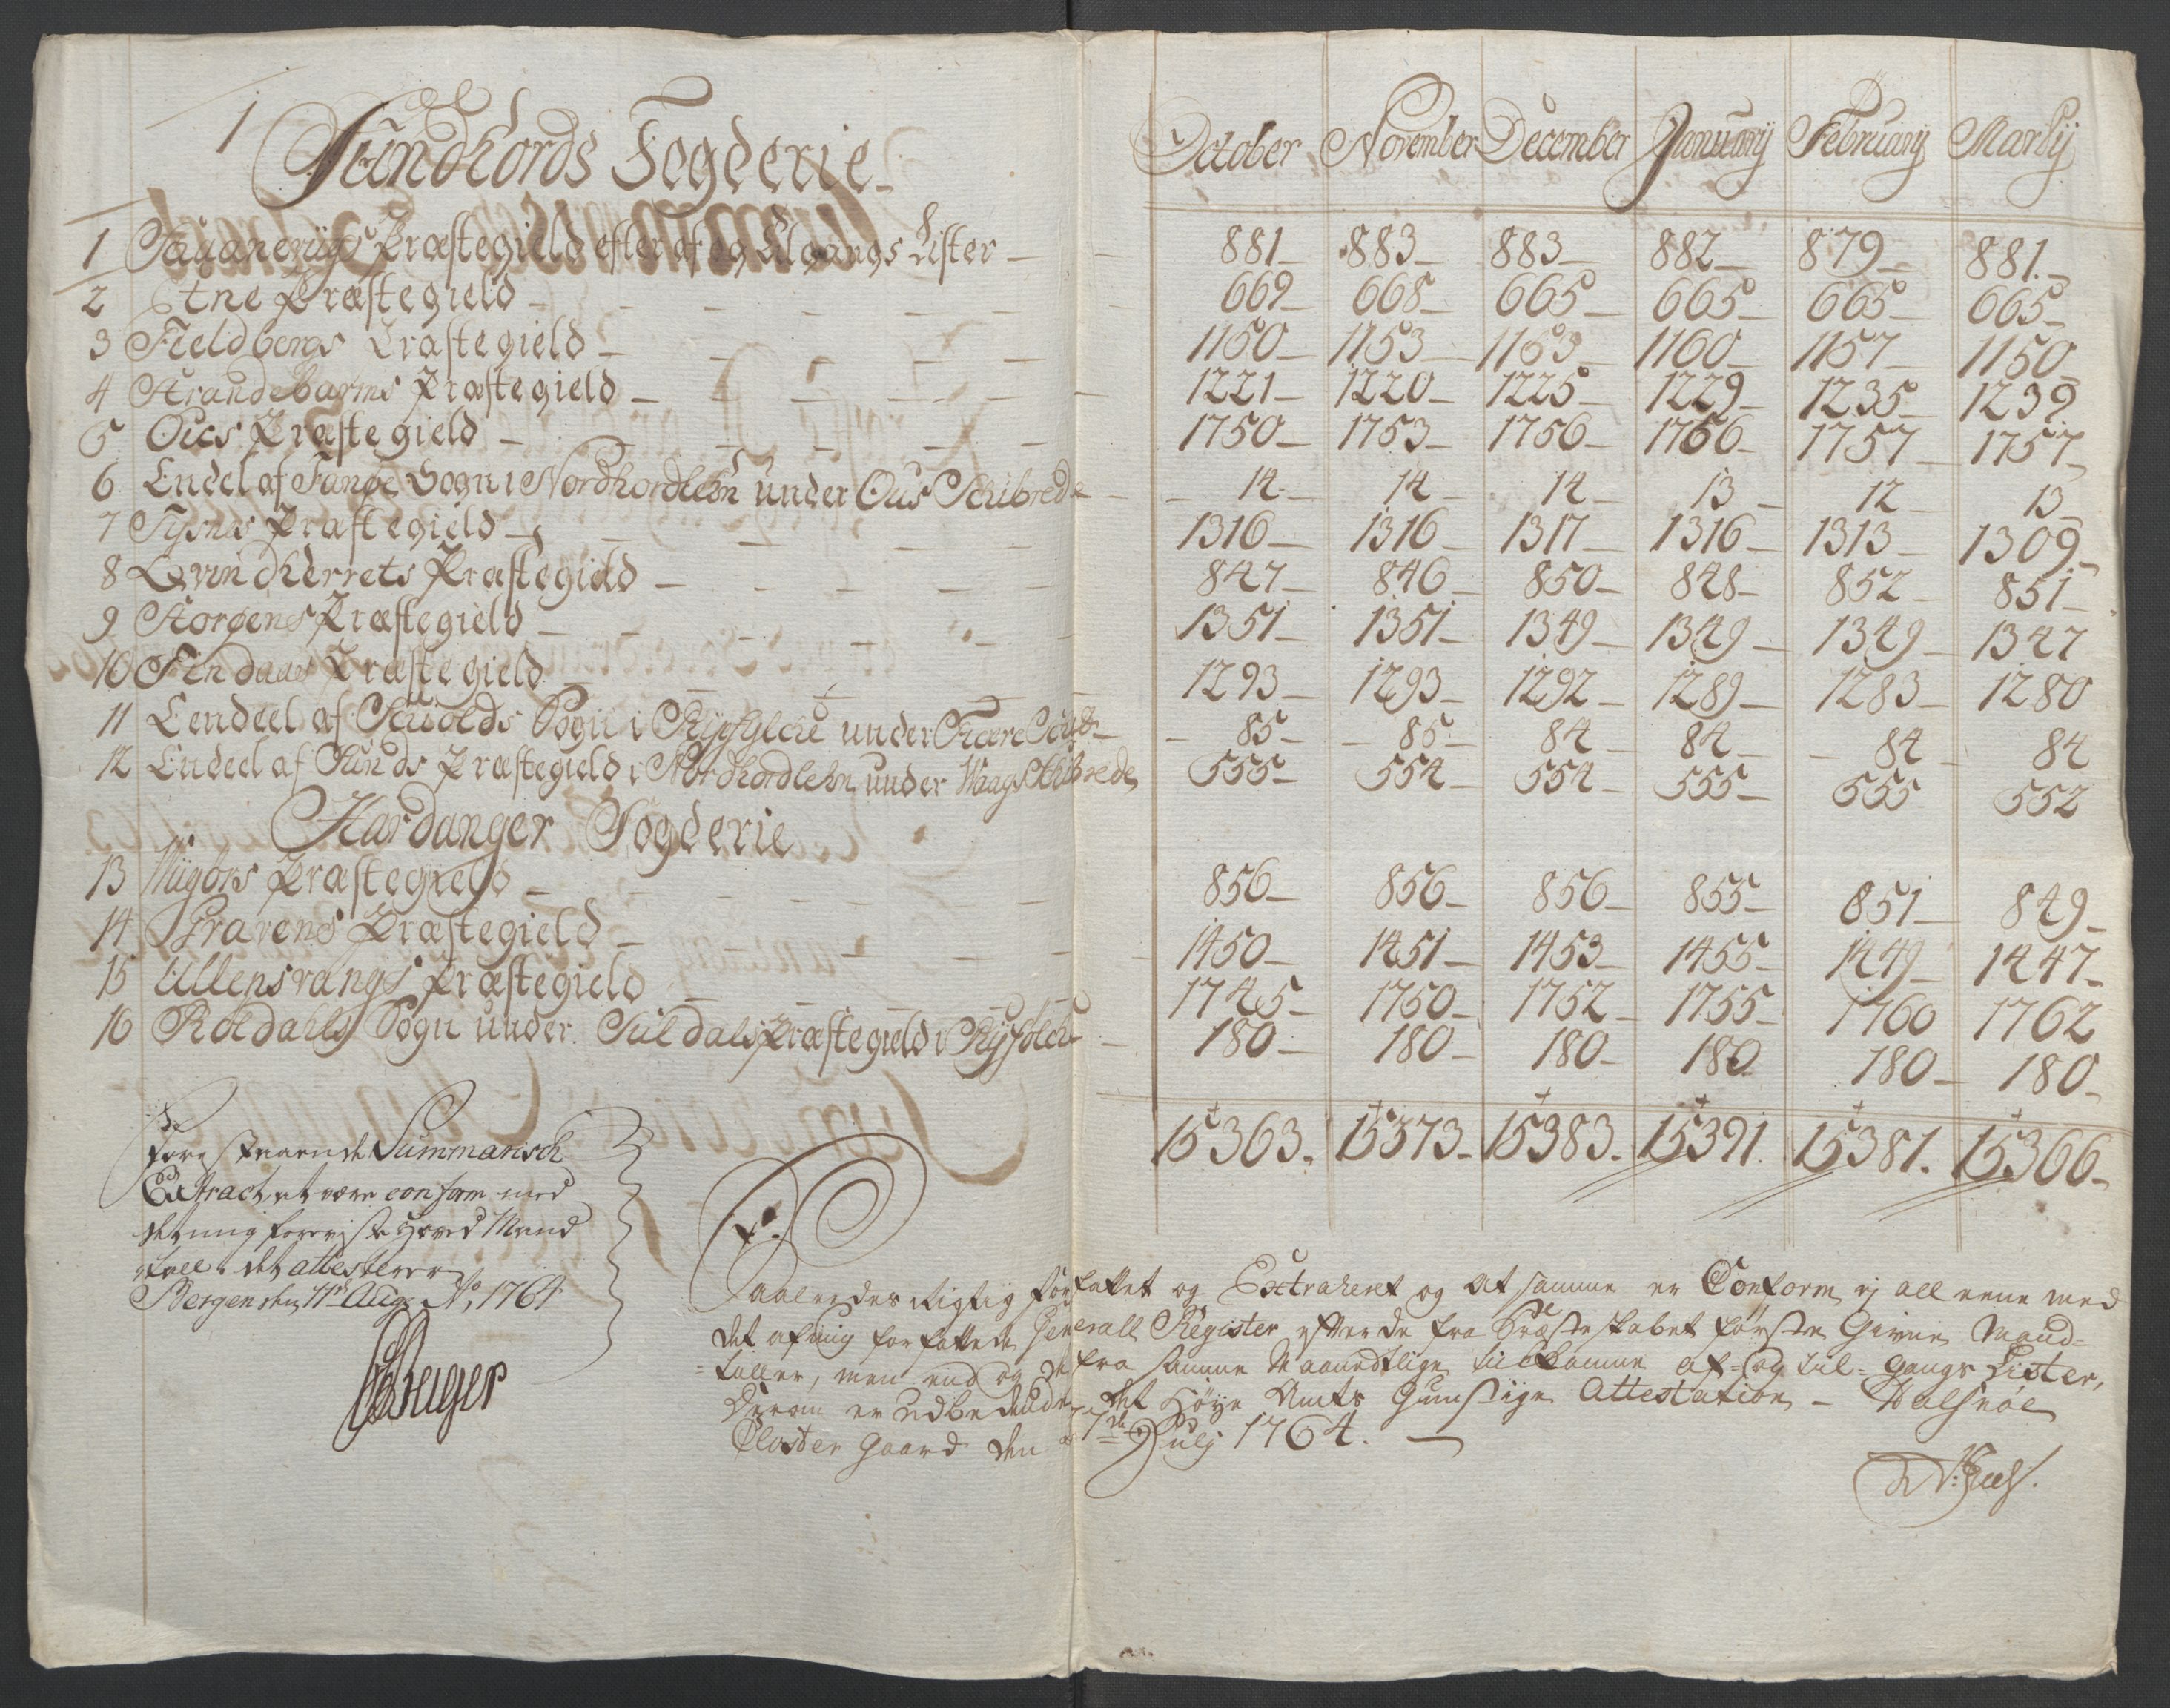 1
Sundhords Fogderie
October November December January February Marty
1 Skaanevigs Præstegield efter af og tilgangs Lister — 881 — 883 — 883 — 882 — 879 — 881 —
2 Etne Præstegield — 669 — 668 — 665 — 665 — 665 — 665 —
3 Fieldbergs Præstegield — 1150 — 1153 — 1153 — 1160 — 1157 — 1150 —
4 Strandebarms Præstegield — 1221 — 1220 — 1225 — 1229 — 1235 — 1239
5 Ous Præstegield — 1750 — 1753 — 1756 — 1756 — 1757 — 1757 —
6 Endel af Fanøe Sogn i Nordhordlehn under Ous Schibrede — 14 — 14 — 14 — 13 — 12 — 13
7 Tysnes Præstegield — 1316 — 1316 — 1317 — 1316 — 1313 — 1309 —
8 Qvindherrets Præstegield — 847 — 846 — 850 — 848 — 852 — 851 —
9 Storøens Præstegield — 1351 — 1351 — 1349 — 1349 — 1349 — 1347
10 Findaas Præstegield — 1293 — 1293 — 1292 — 1289 — 1283 — 1280
11 Eendeel af Skiolds Sogn i Ryefylche under Fiære — 85 — 85 — 84 — 84 — 84 — 84
12 Endeel af Sunds Præstegield i Nordhordlehn under Waags Schibrede 555 — 554 — 554 — 555 — 555 552
Hardanger Fogderie
13 Wigørs Præstegield — 856 — 856 — 856 — 855 — 851 — 849 —
14 Gravens Præstegield — 1450 — 1451 — 1453 — 1455 — 1449 — 1447 —
15 Ullensvangs Præstegield — 1745 — 1750 — 1752 — 1755 — 1760 1762
16 Røldahls Sogn under Suldals Præstegield i Ryefylche — 180 — 180 — 180 — 180 180 — 180 —
15363. 15373 — 15383. 15391. 15381. 15366 —
Forestaaende Summarisch
Extract at være conform med
det mig foreviste Hoved Mand
tall det attesterer
Bergen den 11te Aug: Ao 1764
Saaledes rigtig forfattet og Extraheret og at samme er Conform ej alleene med
det af mig forfattede Generall Register efter de fra Præsteskabet første Givne Mand-
taller, men end og de fra samme Maanedtlige indkomne af- og til- gangs Lister,
Derom er udbedende det Høye Amts Gunstige Attestation — Halsnøe
Closter Gaard den 7de July 1764. —